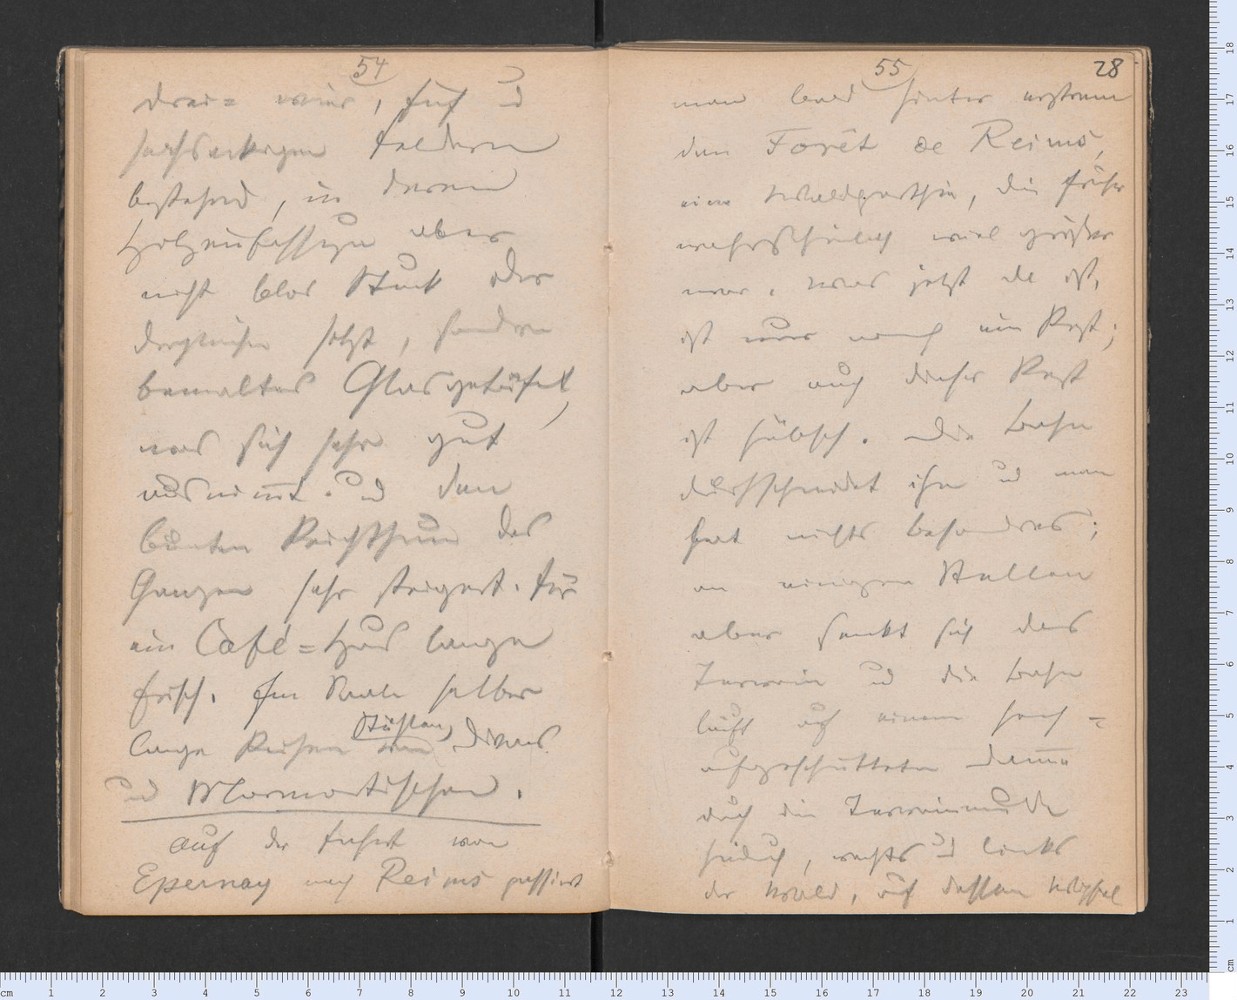 54
drei= vier, fünf und
sechseckigen Feldern
bestehend, in deren
Holzeinfassungen aber
nicht blos Stuck oder
dergleichen sitzt, sondern
bemaltes Glasgetäfel,
was sich sehr gut
ausnimmt und den
bunten Reichthum des
Ganzen sehr steigert. Für
ein Café=Haus lange
frisch. Im Saale selber
lange Reihen von Stühlen, Divans
und Marmortischen.
Auf der Fahrt von
Epernay nach Reims passirt
55
28
man bald hinter ersterem
den Forêt de Reims,
eine Waldparthie, die früher
wahrscheinlich viel größer
war. Was jetzt da ist,
ist nur noch ein Rest;
aber auch dieser Rest
ist hübsch. Die Bahn
durchschneidet ihn und man
hat nichts besondres;
an einigen Stellen
aber senkt sich das
Terrain und die Bahn
läuft auf einem hoch=
aufgeschütteten Damm
durch die Terrainmulde
hindurch, rechts und links
der Wald, auf dessen Wipfel